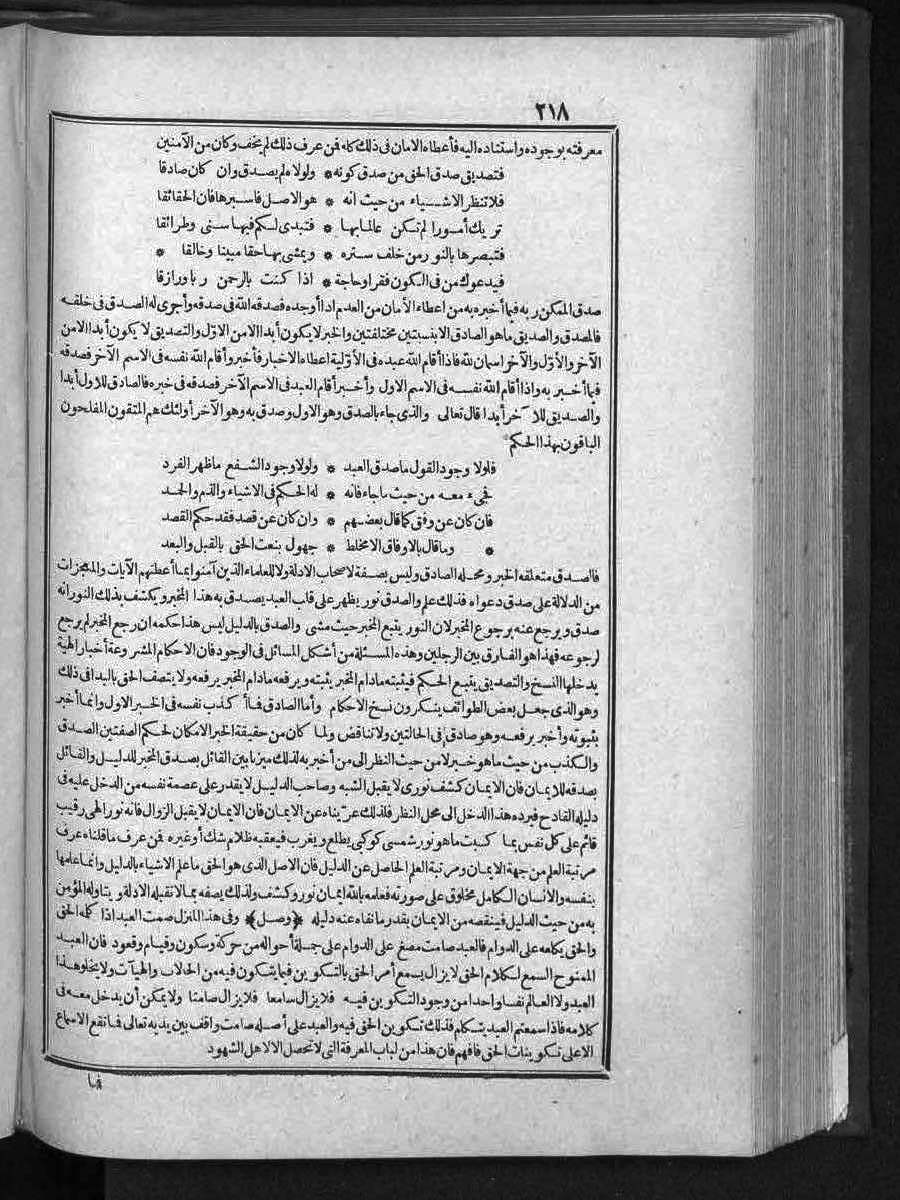 ٢١٨
معرفته بوجوده واستناده اليه فأعطاه الامان فى ذلك كله فمن عرف ذلك لم يخف وكان من الآمنين
فتصديق صدق الحق من صدق كونه * ولولاه لم يصدق وان كان صادقا
فلا تنظر الاشياء من حيث انه * هو الاصل فاسبرها فان الحقائقا
تريك أمورا لم تكن عالما بها * فتبدى لكم فيها سنى وطرائقا
فتبصرها بالنور من خلف ستره * ويمشى بها حقا مبينا وخالقا *
فيدعوك من فى الكون فقرا وحاجة * اذا كنت بالرحمن ربا ورازقا
صدق الممكن ربه فيما أخبره به من اعطاء الأمان من العدم اذا أوجده فصدقه الله فى صدقه وأجرى له الصدق فى خلقه
فالمصدق والصديق ما هو الصادق الا بنسبتين مختلفتين والخبر لا يكون أبدا الا من الاول والتصديق لا يكون أبدا الا من
الآخر والأول والآخر اسمان لله فاذا أقام الله عبده فى الأولية أعطاه الاخبار فأخبر وأقام الله نفسه فى الاسم الآخر فصدقه
فيما أخبر به واذا أقام الله نفسه فى الاسم الاول وأخبر أقام العبد فى الاسم الآخر فصدقه فى خبره فالصادق للاول أبدا
والصديق للآخر أبدا قال تعالى والذى جاء بالصدق وهو الاول وصدق به وهو الآخر أولئك هم المتقون المفلحون
الباقون بهذا الحكم
فلولا وجود القول ما صدق العبد * ولولا وجود الشفع ما ظهر الفرد
فجىء معه من حيث ما جاء فانه * له الحكم فى الاشياء والذم والحمد
فان كان عن وفق كما قال بعضهم * وان كان عن قصد فقد حكم القصد
* وما قال بالاوفاق الا مخلط * جهول بنعت الحق بالقبل والبعد
فالصدق متعلقه الخبر ومحله الصادق وليس بصفة لاصحاب الادلة ولا للعلماء الذين آمنوا بما أعطتهم الآيات والمعجزات
من الدلالة على صدق دعواه فذلك علم والصدق نور يظهر على قلب العبد يصدق به هذا المخبر ويكشف بذلك النور انه
صدق ويرجع عنه برجوع المخبر لان النور يتبع المخبر حيث مشى والصدق بالدليل ليس هذا حكمه ان رجع المخبر لم يرجع
لرجوعه فهذا هو الفارق بين الرجلين وهذه المسئلة من أشكل المسائل فى الوجود فان الاحكام المشروعة أخبار الهية
يدخلها النسخ والتصديق يتبع الحكم فيثبته مادام المخبر يثبته ويرفعه مادام المخبر يرفعه ولا يتصف الحق بالبدا فى ذلك
وهو الذى جعل بعض الطوائف ينكرون نسخ الاحكام وأما الصادق فما أكذب نفسه فى الخبر الاول وانما أخبر
بثبوته وأخبر برفعه وهو صادق فى الحالتين ولا تناقض ولما كان من حقيقة الخبر الامكان لحكم الصفتين الصدق
والكذب من حيث ما هو خبر لا من حيث النظر الى من أخبر به لذلك ميزنا بين القائل بصدق المخبر للدليل والقائل
بصدقه للايمان فان الايمان كشف نورى لا يقبل الشبه وصاحب الدليل لا يقدر على عصمة نفسه من الدخل عليه فى
دليله القادح فيرده هذا الدخل الى محل النظر فلذلك عريناه عن الايمان فان الايمان لا يقبل الزوال فانه نور الهى رقيب
قائم على كل نفس بما كسبت ما هو نور شمسى كوكبى يطلع ويغرب فيعقبه ظلام شك أو غيره فمن عرف ما قلناه عرف
مرتبة العلم من جهة الايمان ومرتبة العلم الحاصل عن الدليل فان الاصل الذى هو الحق ما علم الاشياء بالدليل وانما علمها
بنفسه والانسان الكامل مخلوق على صورته فعلمه بالله ايمان نور وكشف ولذلك يصفه بما لا تقبله الادلة ويتأوله المؤمن
به من حيث الدليل فينقصه من الايمان بقدر ما نفاه عنه دليله ﴿وصل﴾ وفى هذا المنزل صمت العبد اذا كلمه الحق
والحق يكلمه على الدوام فالعبد صامت مصغ على الدوام على جملة أحواله من حركة وسكون وقيام وقعود فان العبد
الممنوح السمع لكلام الحق لا يزال يسمع أمر الحق بالتكوين فيما يتكون فيه من الحالات والهيآت ولا يخلو هذا
العبد ولا العالم نفسا واحدا من وجود التكوين فيه فلا يزال سامعا فلا يزال صامتا ولا يمكن أن يدخل معه فى
كلامه فاذا سمعتم العبد يتكلم فذلك تكوين الحق فيه والعبد على أصله صامت واقف بين يديه تعالى فما تقع الاسماع
الا على تكوينات الحق فافهم فان هذا من لباب المعرفة التى لا تحصل الا لاهل الشهود
فما